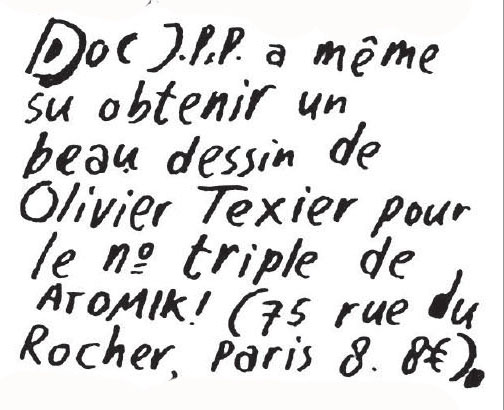 Doc J.P.P. a même
su obtenir un
beau dessin de
Olivier Texier pour
le nº triple de
ATOMIK! (75 rue du
Rocher, Paris 8. 8€).